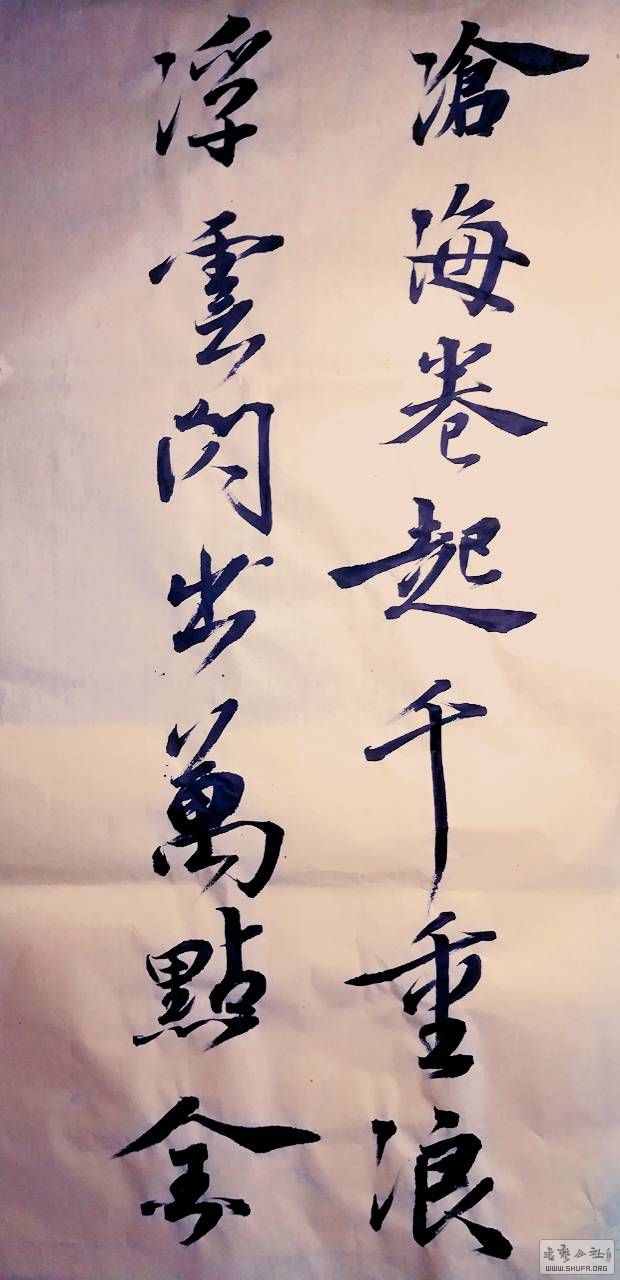 滄海卷起千重浪
浮雲閃出萬點金
書藝公社
WWW.SHUFA.ORG